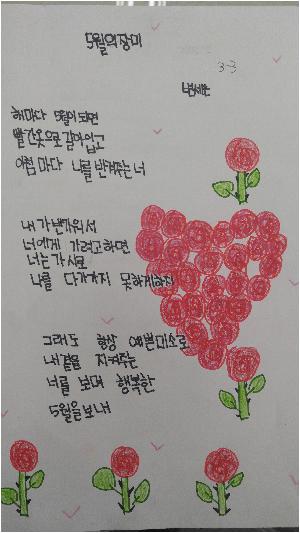 5월의 장미
3-3
해마다 5월이 되면
빨간옷으로 갈아입고
아침마다 나를 반겨주는 너
내가 반가워서
너에게 가려고하면
너는 가시로
나를 다가가지 못하게하지
그래도 항상 예쁜미소로
내곁을 지켜주는
너를 보며 행복한
5월을보내